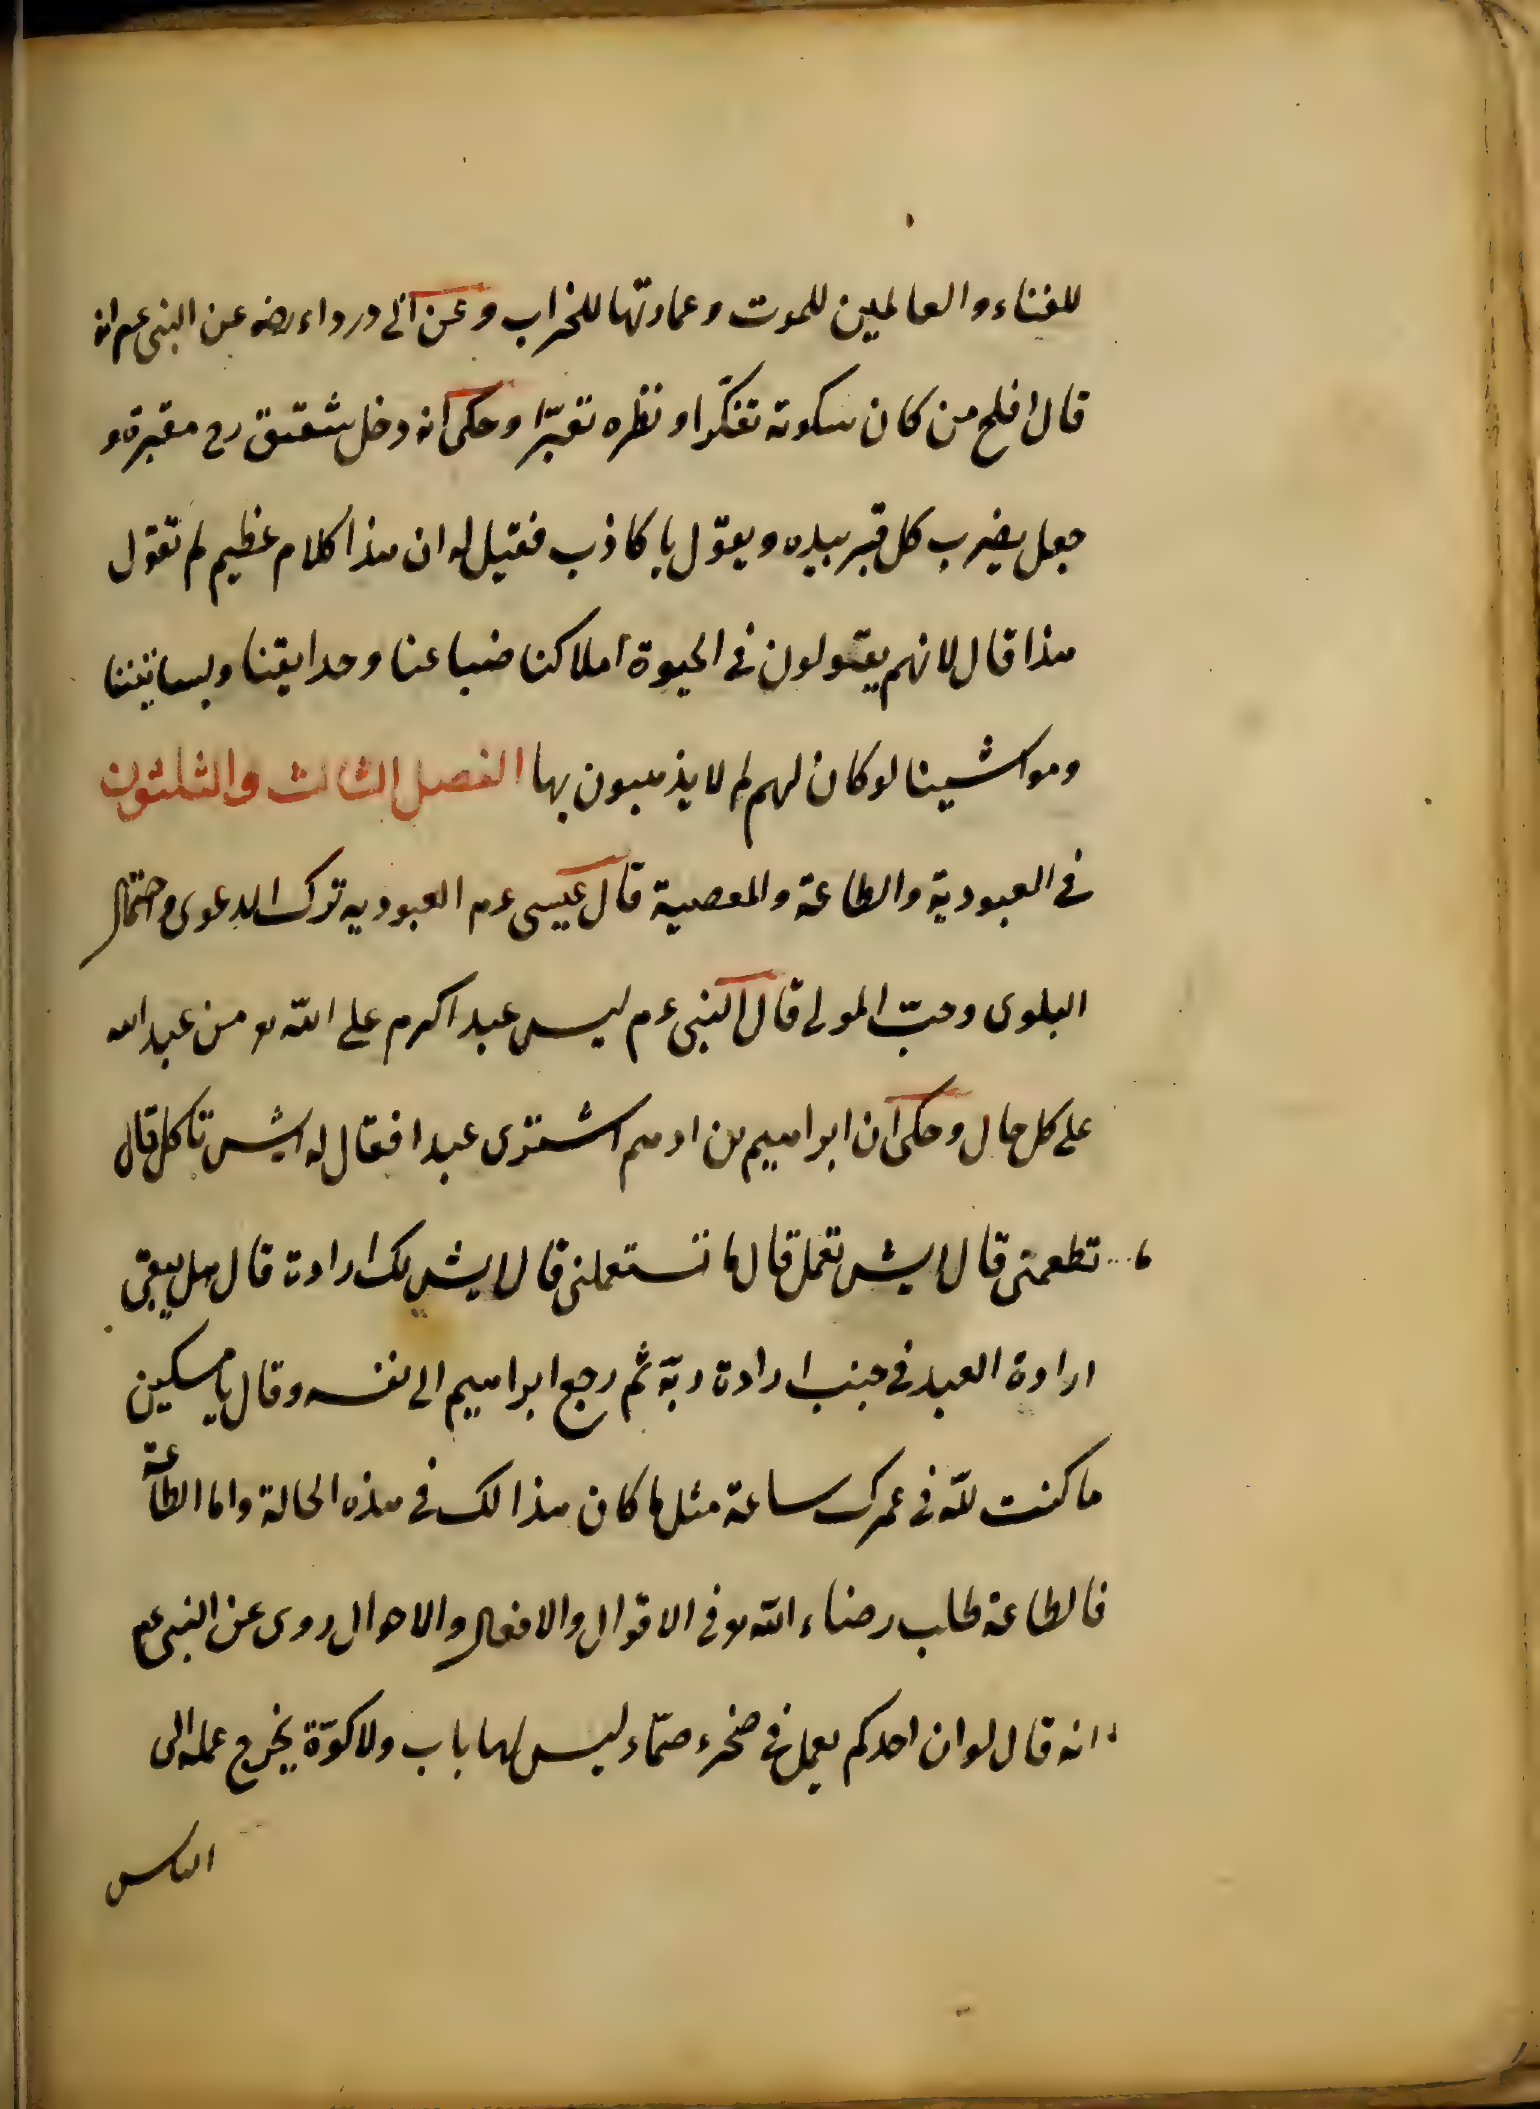 للفناء والعالمين للموت وعمارتها للخراب وعن ابى درداء رضه عن النبى عم انه
قال افلح من كان سكوته تفكّرا ونظره تعبّرا وحكى انه دخل شقيق رح مقبرة و
جعل يضرب كل قبر بيده ويقول يا كاذب فقيل له ان هذا كلام عظيم لم تقول
هذا قال لانهم يقولون فى الحيوة املاكنا ضياعنا وحدايقنا وبساتيننا
ومواشينا لو كان لهم لم لا يذهبون بها الفصل الثالث والثلثون
فى العبودية والطاعة والمعصية قال عيسى عم العبوديه ترك الدعوى واحتمال
البلوى وحبّ المولى قال النبى عم ليس عبد اكرم على الله تع من عبد الله
على كل حال وحكى ان ابراهيم بن ادهم اشترى عبدا فقال له ايش تاكل قال
ما تطعمنى قال ايش تعمل قال ما تستعملنى قال ايش لك ارادة قال هل يبقى
ارادة العبد فى جنب ارادة ربّه ثم رجع ابراهيم الى نفسه وقال يا مسكين
ما كنت للّه فى عمرك ساعة مثل ما كان هذا لك فى هذه الحالة واما الطاعة
فالطاعة طلب رضاء الله تع فى الاقوال والافعال والاحوال روى عن النبى عم
انه قال لو ان احدكم يعمل فى صخرء صمّاء ليس لها باب ولا كوّة يخرج عمله الى
الناس